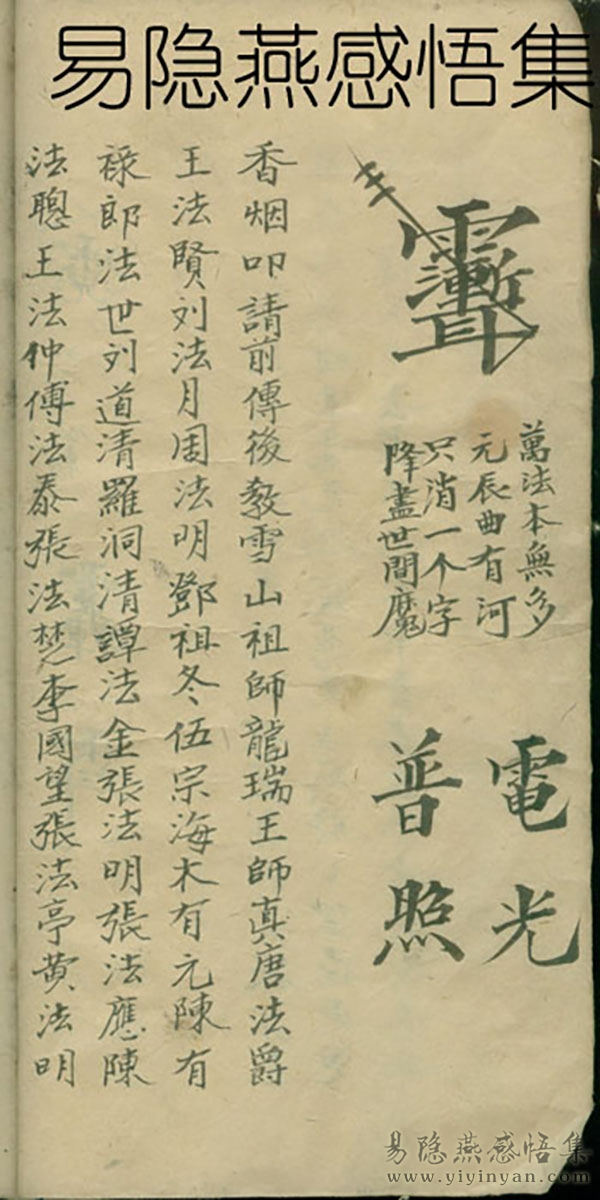 易隐燕感悟集
萬法本無多
元辰曲有河
只消一个字
降盡世間魔
電光
普照
香烟叩請前傳後教雪山祖師龍瑞王師真唐法爵
王法賢刘法月周法明鄧祖冬伍宗海木有元陳有
禄郎法世刘道清羅洞清譚法金張法明張法應陳
法聰王法仲傅法泰張法楚李國望張法亭黄法明
易隐燕感悟集
www.yiyinyan.com